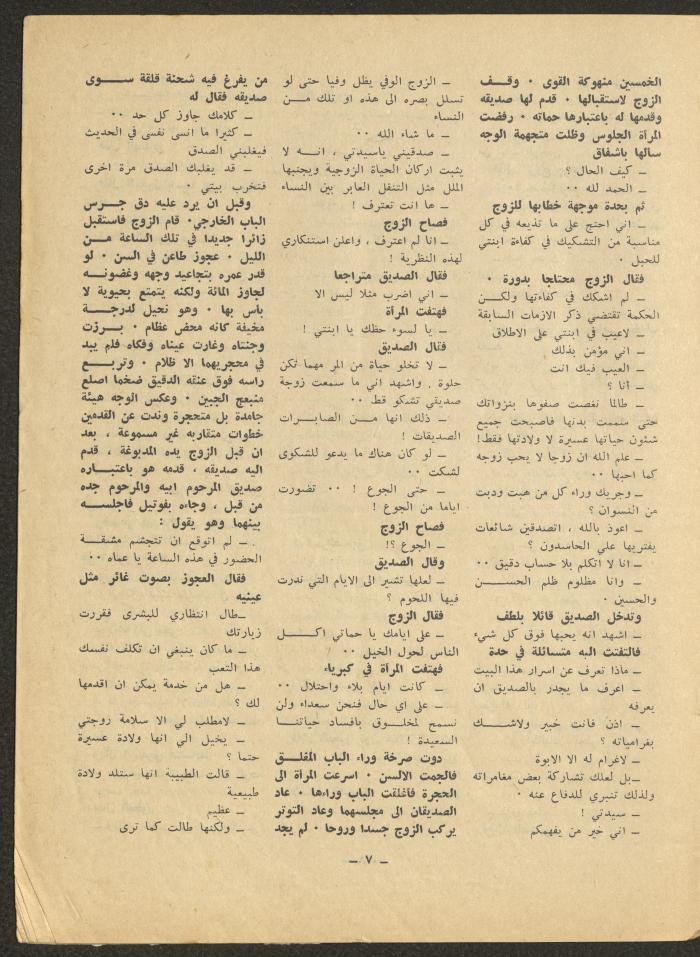 الخمسين منهوكة القوى ٠ وقف
الزوج لاستقبالها ٠ قدم لها صديقه
وقدمها له باعتبارها حماته ٠ رفضت
المرأة الجلوس وظلت متجهمة الوجه
سألها باشفاق
ــ كيف الحال ؟
ــ الحمد لله ٠٠
ثم بحدة موجهة خطابها للزوج
ــ اني احتج على ما تذيعه في كل
مناسبة من التشكيك في كفاءة ابنتي
للحبل ٠
فقال الزوج محتاجا بدورة ٠
ــ لم اشكك في كفاءتها ولكن
الحكمة تقتضي ذكر الازمات السابقة
ــ لاعيب في ابنتي على الاطلاق
ــ اني مؤمن بذلك
ــ العيب فيك انت
ــ أنا ؟
ــ طالما نغصت صفوها بنزواتك
حتى سممت بدنها فاصبحت جميع
شئون حياتها عسيرة لا ولادتها فقط!
ــ علم الله ان زوجا لا يحب زوجه
كما احبها ٠٠
ــ وجريك وراء كل من هبت ودبت
من النسوان ؟
ــ اعوذ بالله ، اتصدقين شائعات
يفتريها علي الحاسدون ؟
ــ انا لا اتكلم بلا حساب دقيق ٠٠
ــ وانا مظلوم ظلم الحسن
والحسين ٠
وتدخل الصديق قائلا بلطف
ــ اشهد انه يحبها فوق كل شيء
فالتفتت اليه متسائلة في حدة
ــ ماذا تعرف عن اسرار هذا البيت
ــ اعرف ما يجدر بالصديق ان
يعرفه
ــ اذن فانت خبير ولاشك
بغرامياته ؟
ــ لاغرام له الا الابوة
ــ بل لعلك تشاركة بعض مغامراته
ولذلك تنبري للدفاع عنه ٠
ــ سيدتي !
ــ اني خير من يفهمكم
ــ الزوج الوفي يظل وفيا حتى لو
تسلل بصره الى هذه او تلك من
النساء
ــ ما شاء الله ٠٠
ــ صدقيني ياسيدتي ، انه لا
يثبت اركان الحياة الزوجية ويجنبها
الملل مثل التنقل العابر بين النساء
ــ ها انت تعترف !
فصاح الزوج
ــ انا لم اعترف ، واعلن استنكاري
لهذه النظرية !
فقال الصديق متراجعا
ــ اني اضرب مثلا ليس الا
فهتفت المرأة
ــ يا لسوء حظك يا ابنتي !
فقال الصديق
ــ لا تخلو حياة من المر مهما تكن
حلوة . واشهد اني ما سمعت زوجة
صديقي تشكو قط ٠٠
ــ ذلك انها من الصابرات
الصديقات !
ــ لو كان هناك ما يدعو للشكوى
لشكت ٠٠
ــ حتى الجوع ! ٠٠ تضورت
اياما من الجوع !
فصاح الزوج
ــ الجوع ؟!
وقال الصديق
ــ لعلها تشير الى الايام التي ندرت
فيها اللحوم ؟
فقال الزوج
ــ على ايامك يا حماتي اكل
الناس لحول الخيل ٠٠
فهتفت المرأة في كبرياء
ــ كانت ايام بلاء واحتلال ٠٠
ــ على اي حال فنحن سعداء ولن
نسمح لمخلوق بافساد حياتنا
السعيدة !
دوت صرخة وراء الباب المغلق
فالجمت الالسن ٠ اسرعت المرأة الى
الحجرة فأغلقت الباب وراءها ٠ عاد
الصديقان الى مجلسهما وعاد التوتر
يركب الزوج جسدا وروحا ٠ لم يجد
من يفرغ فيه شحنة قلقة سوى
صديقه فقال له
ــ كلامك جاوز كل حد ٠٠
ــ كثيرا ما انسى نفسي في الحديث
فيغلبني الصدق
ــ قد يغلبك الصدق مرة اخرى
فتخرب بيتي ٠
وقبل ان يرد عليه دق جرس
الباب الخارجي٠ قام الزوج فاستقبل
زائرا جديدا في تلك الساعة من
الليل ٠ عجوز طاعن في السن ٠ لو
قدر عمره بتجاعيد وجهه وغضونه
لجاوز المائة ولكنه يتمتع بحيوية لا
باس بها ٠ وهو نحيل لدرجة
مخيفة كانه محض عظام ٠ برزت
وجنتاه وغارت عيناه وفكاه فلم يبد
في محجريهما الا ظلام ٠ وتربع
راسه فوق عنقه الدقيق ضخما اصلع
منبعج الجبين ٠ وعكس الوجه هيئة
جامدة بل متحجرة وندت عن القدمين
خطوات متقاربه غير مسموعة ، بعد
ان قبل الزوج يده المدبوغة ، قدم
اليه صديقه ، قدمه هو باعتباره
صديق المرحوم ابيه والمرحوم جده
من قبل ، وجاءه بفوتيل فاجلسه
بينهما وهو يقول :
ــ لم اتوقع ان تتجشم مشقة
الحضور في هذه الساعة يا عماه ٠٠
فقال العجوز بصوت غائر مثل
عينيه
ــ طال انتظاري للبشرى فقررت
زيارتك
ــ ما كان ينبغي ان تكلف نفسك
هذا التعب
ــ هل من خدمة يمكن ان اقدمها
لك ؟
ــ لامطلب لي الا سلامة زوجتي
ــ يخيل الي انها ولادة عسيرة
حتما ؟
ــ قالت الطبيبة انها ستلد ولادة
طبيعية
ــ عظيم
ــ ولكنها طالت كما ترى
ــ ٧ ــ